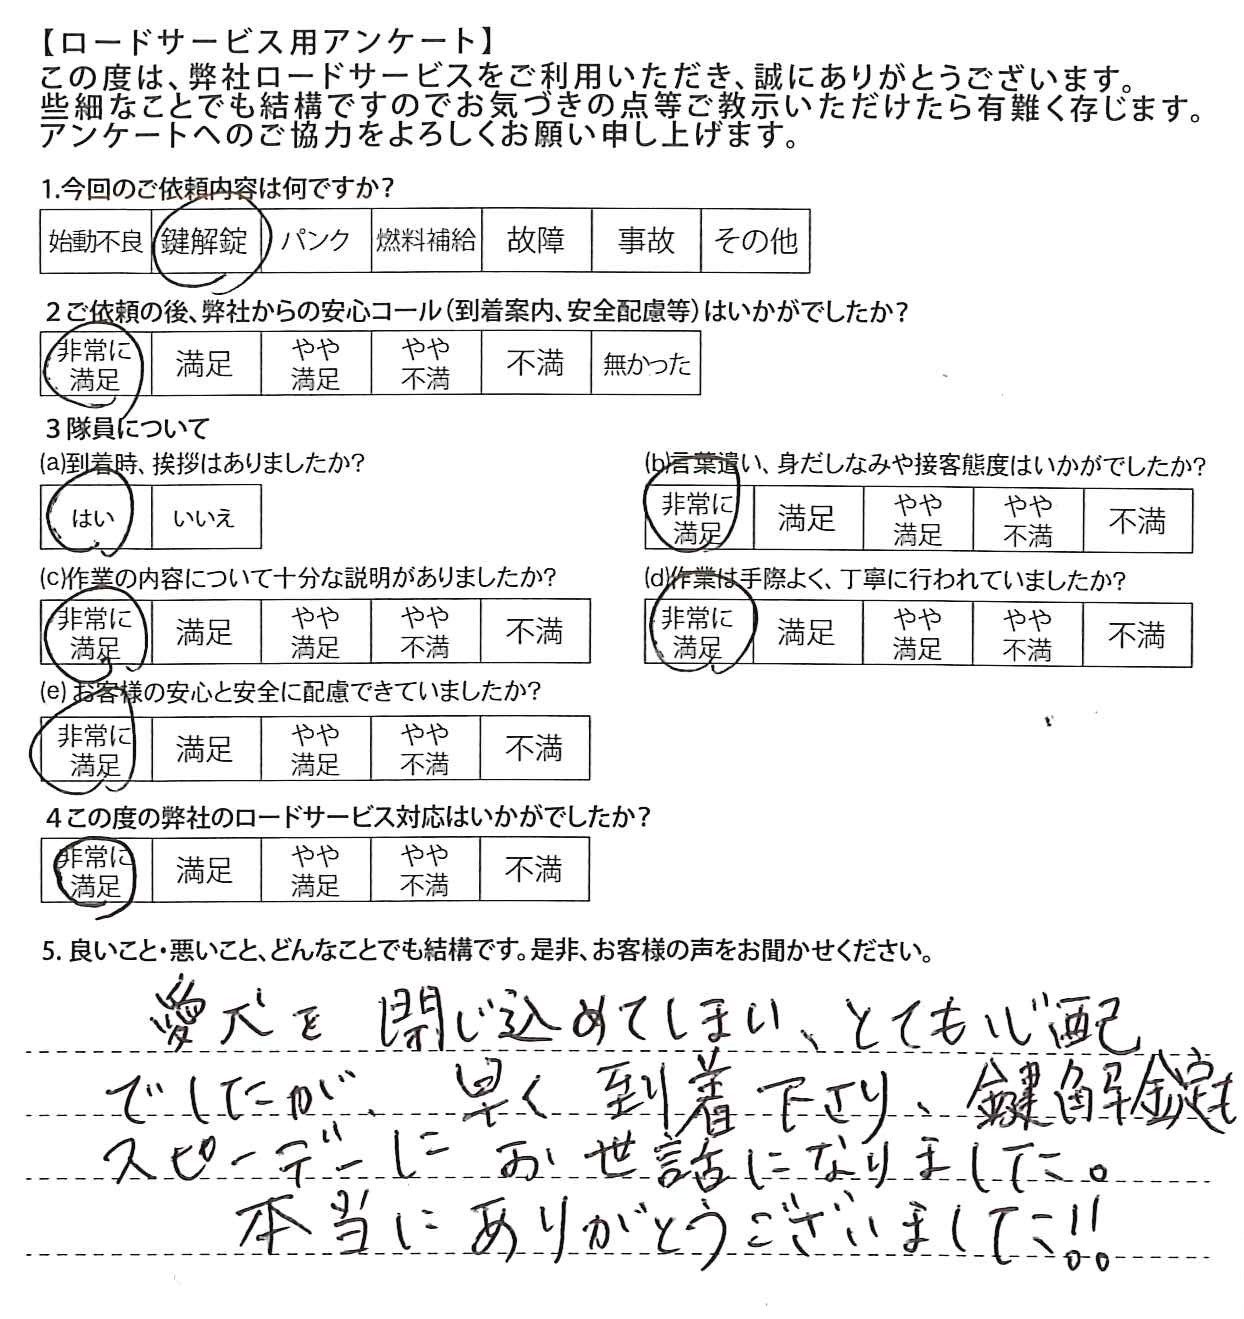 【ロードサービス用アンケート】
この度は、弊社ロードサービスをご利用いただき、誠にありがとうございます。
些細なことでも結構ですのでお気づきの点等ご教示いただけたら有難く存じます。
アンケートへのご協力をよろしくお願い申し上げます。
1.今回のご依頼内容は何ですか?
始動不良 鍵解錠 パンク 燃料補給 故障 事故 その他
2ご依頼の後、弊社からの安心コール(到着案内、安全配慮等)はいかがでしたか?
非常に満足 満足 やや満足 やや不満 不満 無かった
3隊員について
(a)到着時、挨拶はありましたか?
はい いいえ
(b)言葉遣い、身だしなみや接客態度はいかがでしたか?
非常に満足 満足 やや満足 やや不満 不満
(c)作業の内容について十分な説明がありましたか?
非常に満足 満足 やや満足 やや不満 不満
(d)作業は手際よく、丁寧に行われていましたか?
非常に満足 満足 やや満足 やや不満 不満
(e)お客様の安心と安全に配慮できていましたか?
非常に満足 満足 やや満足 やや不満 不満
4この度の弊社のロードサービス対応はいかがでしたか?
非常に満足 満足 やや満足 やや不満 不満
5. 良いこと・悪いこと、どんなことでも結構です。是非、お客様の声をお聞かせください。
愛犬を閉じ込めてしまい、とても心配
でしたが、早く到着下さり、鍵解錠も
スピーデーにお世話になりました。
本当にありがとうございました!!